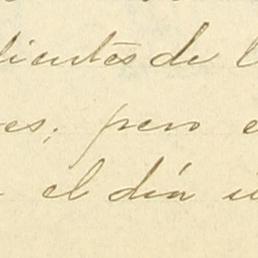 dientes de l
es; pero e
el día i